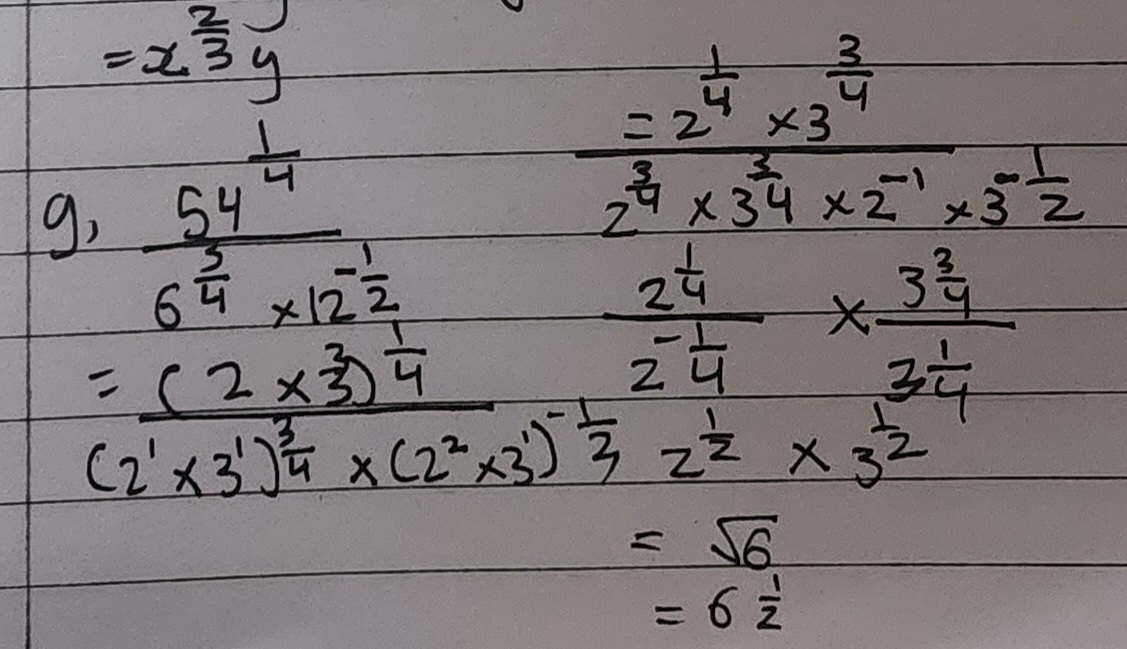 = x^(2/3) y
g, 54^(1/4)
6^(3/4) × 12^(-1/2)
= (2 × 3^3)^(1/4)
(2^1 × 3^1)^(3/4) × (2^2 × 3^1)^(-1/2)
= 2^(1/4) × 3^(3/4)
2^(3/4) × 3^(3/4) × 2^(-1) × 3^(-1/2)
2^(1/4) × 3^(3/4)
2^(-1/4) 3^(1/4)
2^(1/2) × 3^(1/2)
= √6
= 6^(1/2)